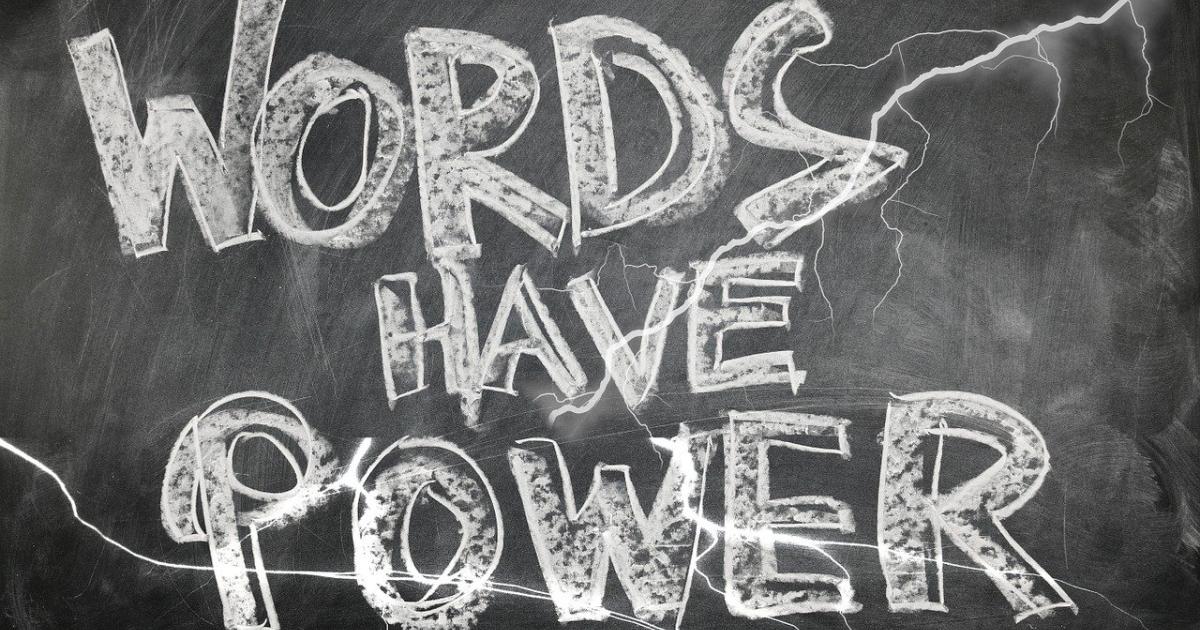 WORDS
HAVE
POWER